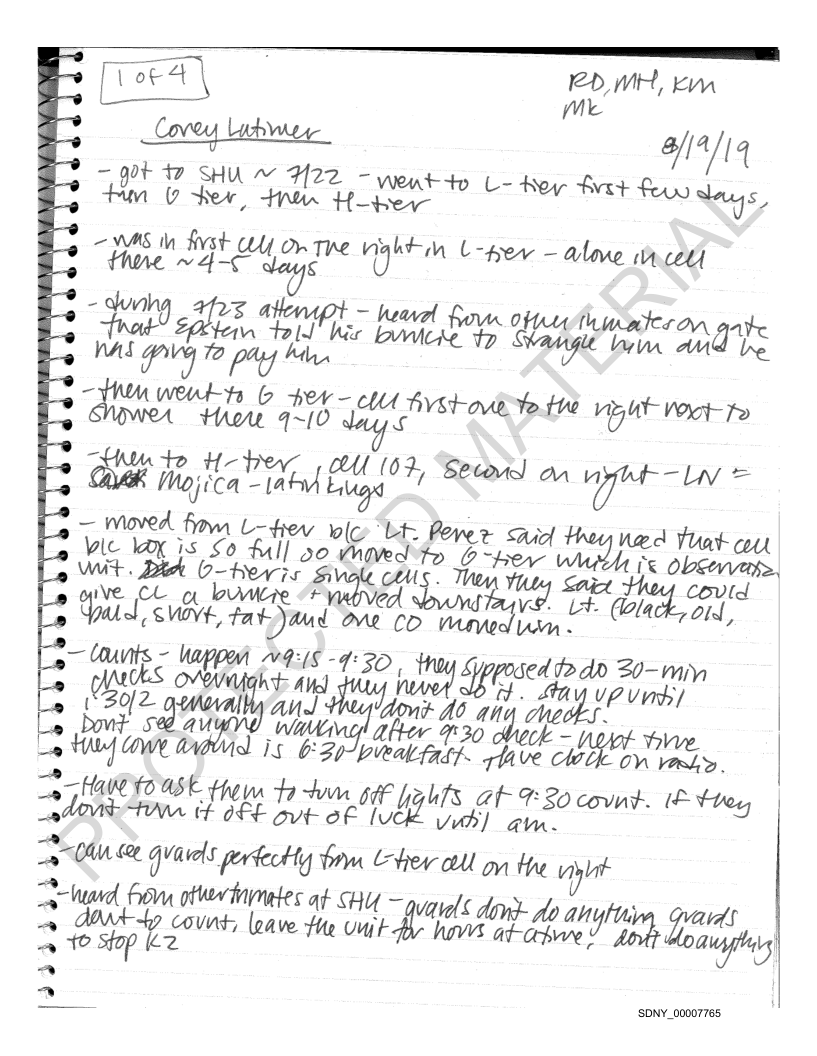 1 of 4
RD, MH, KM
MK
Corey Latimer
8/19/19
- got to SHU ~ 7/22 - went to L-tier first few days,
then G tier, then H-tier
- was in first cell on the right in L-tier - alone in cell
there ~4-5 days
- during 7/23 attempt - heard from other inmates on gate
that Epstein told his bunkie to strangle him and he
was going to pay him
- then went to G tier - cell first one to the right next to
shower there 9-10 days
- then to H-tier, cell 107, second on right - LN =
Mojica - latin kings
- moved from L-tier b/c Lt. Perez said they need that cell
b/c box is so full so moved to G-tier which is observation
unit. G-tier is single cells. Then they said they could
give CL a bunkie + moved downstairs. Lt. (black, old,
bald, short, fat) and one CO moved him.
- Counts - happen ~9:15 - 9:30, they supposed to do 30-min
checks overnight and they never do it. stay up until
1:30/2 generally and they don't do any checks.
Don't see anyone walking after 9:30 check - next time
they come around is 6:30 breakfast. Have clock on radio.
- Have to ask them to turn off lights at 9:30 count. if they
don't turn it off out of luck until am.
- can see guards perfectly from L-tier cell on the right
- heard from other inmates at SHU - guards don't do anything guards
don't to count, leave the unit for hours at a time, don't do anything
to stop K2
PROTECTED MATERIAL
SDNY_00007765